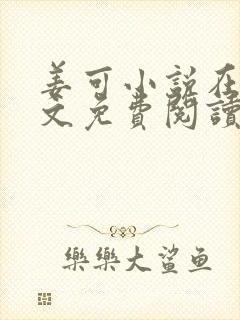 姜可小说在
文免費閱讀
樂樂大鲨鱼